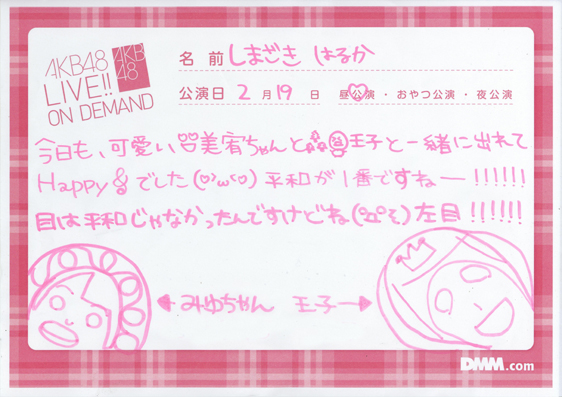 AKB48
LIVE!!
ON DEMAND
AKB
48
名 前 しまざき はるか
公演日 2 月 19 日 昼公演・おやつ公演・夜公演
今日も、可愛い美宥ちゃんと王子と一緒に出れて
Happyでした(♡'ω'♡)平和が1番ですねー!!!!!!
目は平和じゃなかったんですけどね 左目!!!!!!
←みゆちゃん 王子→
DMM.com